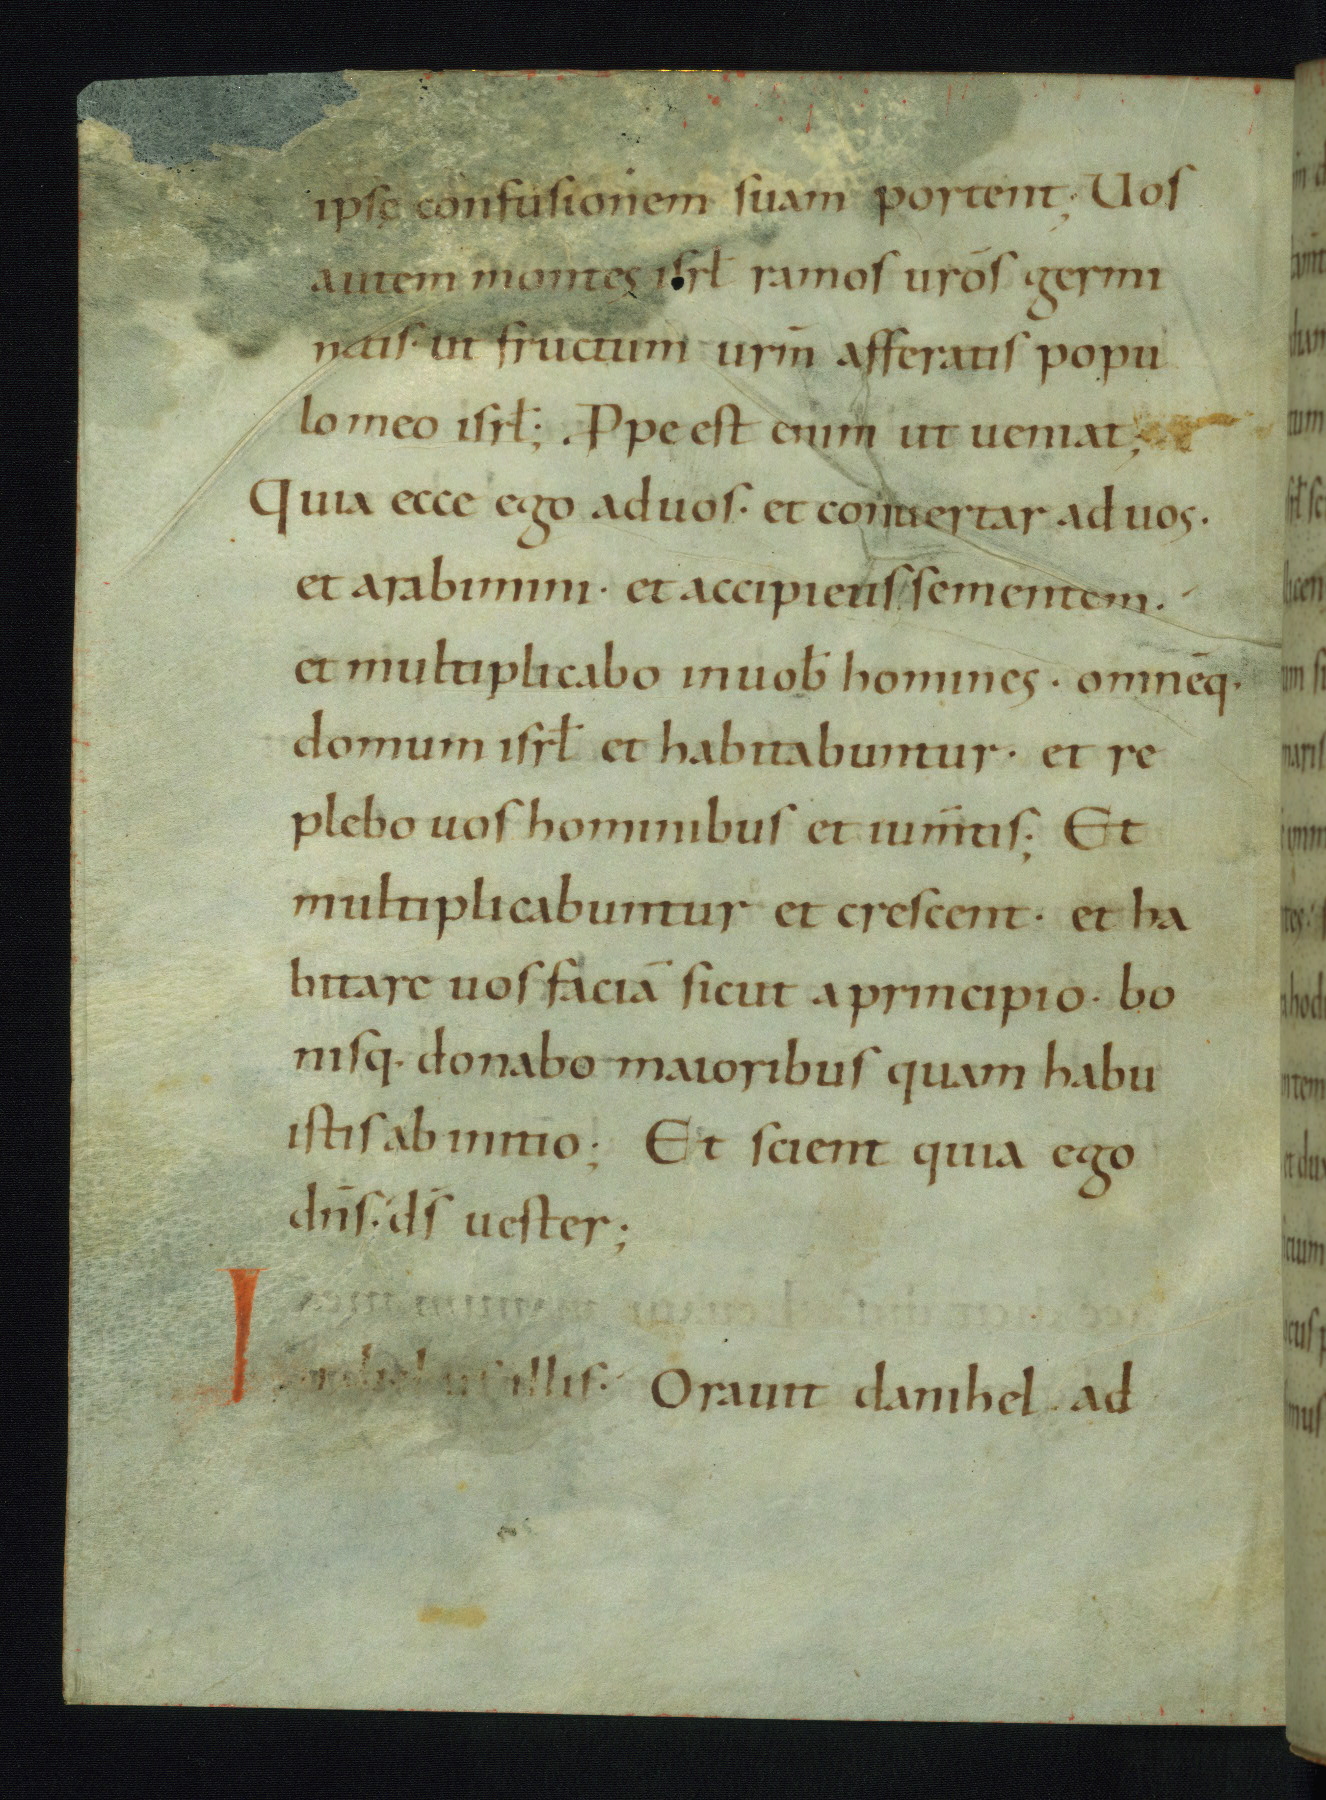 ipsę confusionem suam portent; Uos
autem montes isrł ramos urōs germi
netis· ut fructum urm̄ afferatis popu
lo meo isrł; Ppe est enim ut ueniat;
Quia ecce ego ad uos· et conuertar ad uos·
et arabimini· et accipietis sementem·
et multiplicabo in uob̄ homines· omnēq·
domum isrł et habitabuntur· et re
plebo uos hominibus et ium̄tis; Et
multiplicabuntur et crescent· et ha
bitare uos faciā sicut a principio· bo
nisq· donabo maioribus quam habu
istis ab initio; Et scient quia ego
dn̄s· ds̄ uester;
I illis· Orauit danihel · ad